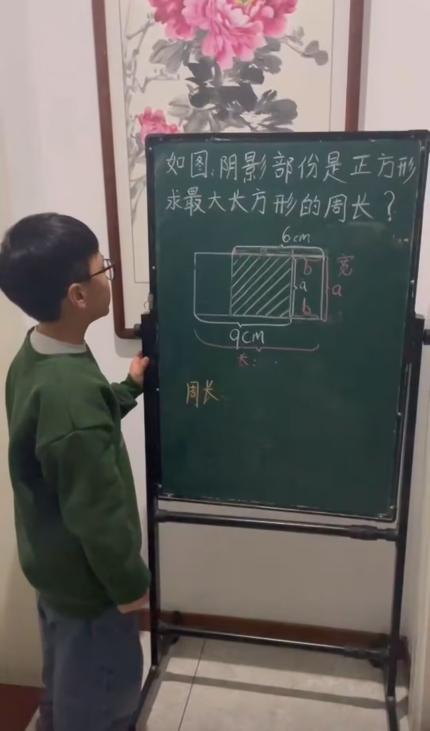 如图,阴影部份是正方形
求最大长方形的周长?
6cm
b 宽
a a
b
9cm
长:
周长